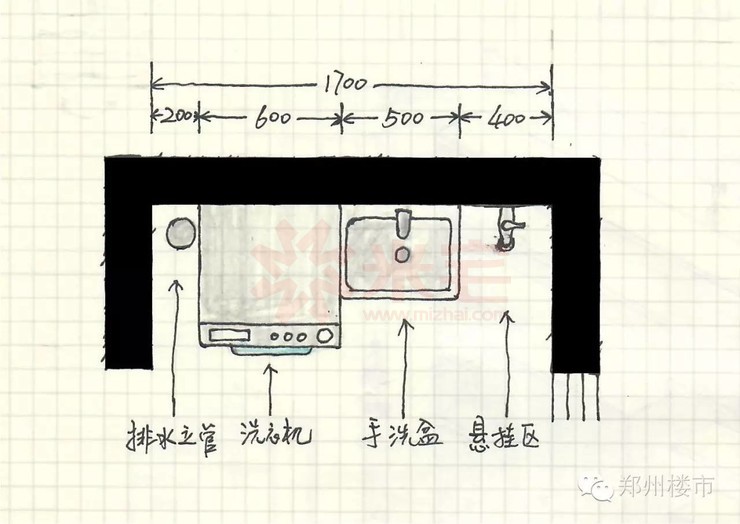 1700
200 600 500 400
米宅
www.mizhai.com
排水立管 洗衣机 手洗盆 悬挂区
郑州楼市